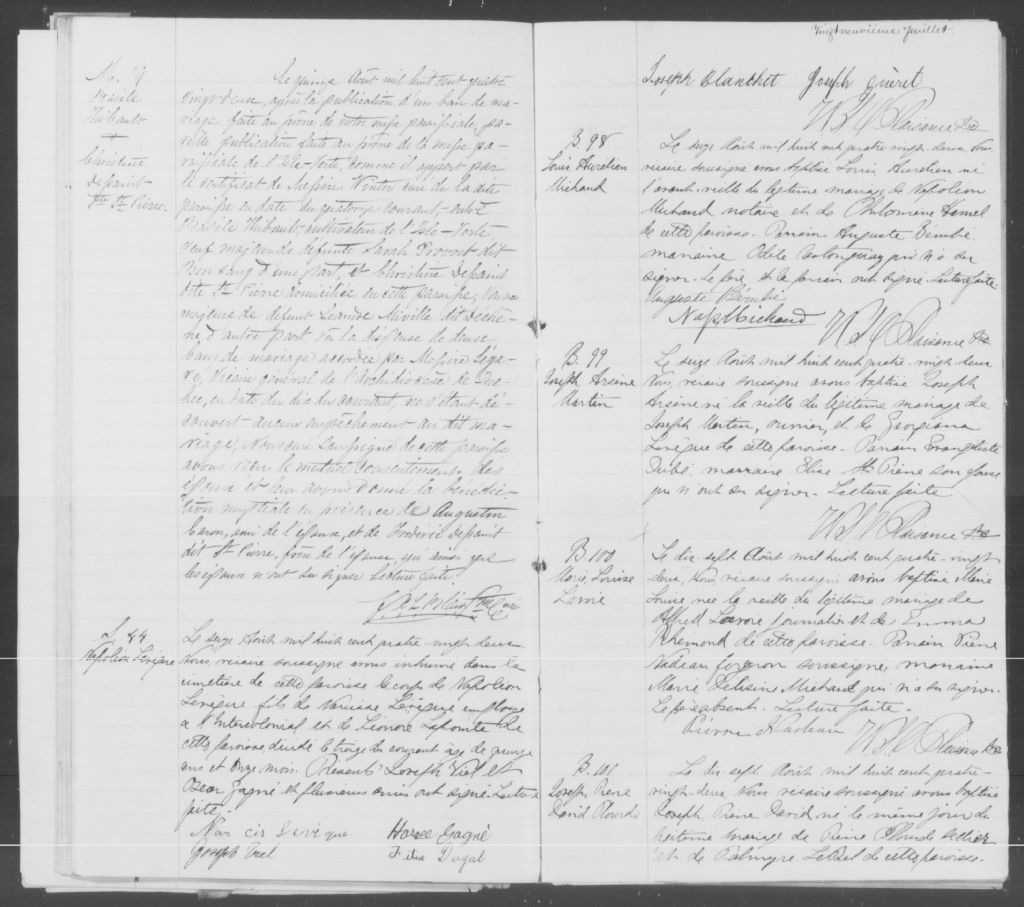 M. 19
Basile
Thibault
&
Christine
Depaint
dite St Pierre.
Le quinze Août mil huit cent quatre
vingt deux, après la publication d'un ban de ma-
riage faite au prône de notre messe paroissiale, pa-
reille publication faite au prône de la messe pa-
roissiale de l'Isle-Verte, comme il appert par
le certificat de Messire Winter curé de la dite
paroisse en date du quatorze courant, entre
Basile Thibault, cultivateur de l'Isle-Verte
veuf majeur de défunte Sarah Provost dit
d'une part, et Christine Depaint
dite St Pierre domiciliée en cette paroisse, veuve
majeure de défunt Miville dit Dechê-
ne d'autre part, vu la dispense de deux
bans de mariage accordée par Messire Léga-
ré, Vicaire général de l'Archidiocèse de Qué-
bec, en date du dix du courant, ne s'étant dé-
couvert aucun empêchement au dit ma-
riage, Nous curé soussigné de cette paroisse
avons reçu le mutuel consentement des
époux et leur avons donné la bénédic-
tion nuptiale en présence de Augustin
Caron, ami de l'époux, et de Frédéric Depaint
dit St Pierre, frère de l'épouse qui ainsi que
les époux n'ont su signer. Lecture faite.
S. 44
Napoléon Levêque
Le seize Août mil huit cent quatre-vingt-deux
Nous, vicaire soussigné avons inhumé dans le
cimetière de cette paroisse le corps de Napoléon
Levêque fils de Narcisse Levêque employé
à l'Intercolonial et de Léonore Lapointe de
cette paroisse décédé le treize du courant âgé de quinze
ans et onze mois. Présents Joseph Viel et
Gagné et plusieurs amis ont signé. Lecture
faite.
Narcis Levêque Gagné
Joseph Viel Dugal
Vingt neuvième feuillet
Joseph Blanchet Joseph Guéret
Plaisance Ptre
B. 98
Louis Aurélien
Michaud
Le seize Août mil huit cent quatre-vingt-deux Nous
vicaire soussigné avons baptisé Louis Aurélien né
l'avant-veille du légitime mariage de Napoléon
Michaud notaire et de Philomène Hamel
de cette paroisse. Parrain Auguste Bérubé
marraine Odile Castonguay qui n'a su
signer. Le père et le parrain ont signé. Lecture faite.
Auguste Bérubé
Nap Michaud Plaisance Ptre
B. 99
Joseph Arsène
Martin
Le seize Août mil huit cent quatre-vingt-deux
Nous, vicaire soussigné avons baptisé Joseph
Arsène né la veille du légitime mariage de
Joseph Martin, ouvrier, et de Georgiana
Levêque de cette paroisse. Parrain Evangéliste
Dubé marraine Elise St Pierre son épouse
qui n'ont su signer. Lecture faite
Plaisance Ptre
B. 100
Marie Louise
Lavoie
Le dix sept Août mil huit cent quatre-vingt
deux, Nous, vicaire soussigné avons baptisé Marie
Louise née la veille du légitime mariage de
Alfred Lavoie journalier et de Emma
Dremond de cette paroisse. Parrain Pierre
Nadeau forgeron soussigné, marraine
Marie Delisine Michaud qui n'a su signer.
Le père absent. Lecture faite.
Pierre Nadeau Plaisance Ptre
B. 101
Joseph Pierre
David Plourde
Le dix sept Août mil huit cent quatre-
vingt-deux Nous vicaire soussigné avons baptisé
Joseph Pierre David né le même jour du
légitime mariage de Pierre Plourde sellier
et de Palmyre LeBel de cette paroisse.